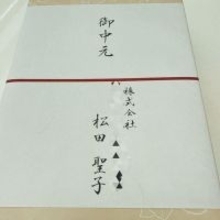 御中元
株式会社▲▲◆◆
松田聖子